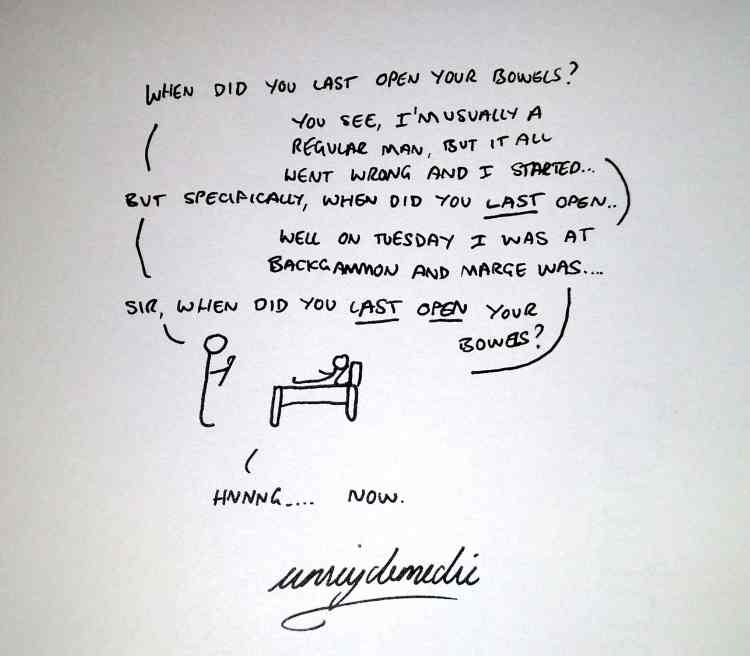 WHEN DID YOU LAST OPEN YOUR BOWELS?
YOU SEE, I'M USUALLY A
REGULAR MAN, BUT IT ALL
WENT WRONG AND I STARTED...
BUT SPECIFICALLY, WHEN DID YOU LAST OPEN..
WELL ON TUESDAY I WAS AT
BACKGAMMON AND MARGE WAS....
SIR, WHEN DID YOU LAST OPEN YOUR
BOWELS?
HNNNG.... NOW.